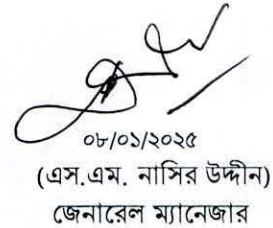 ০৮/০১/২০২৫
(এস.এম. নাসির উদ্দীন)
জেনারেল ম্যানেজার